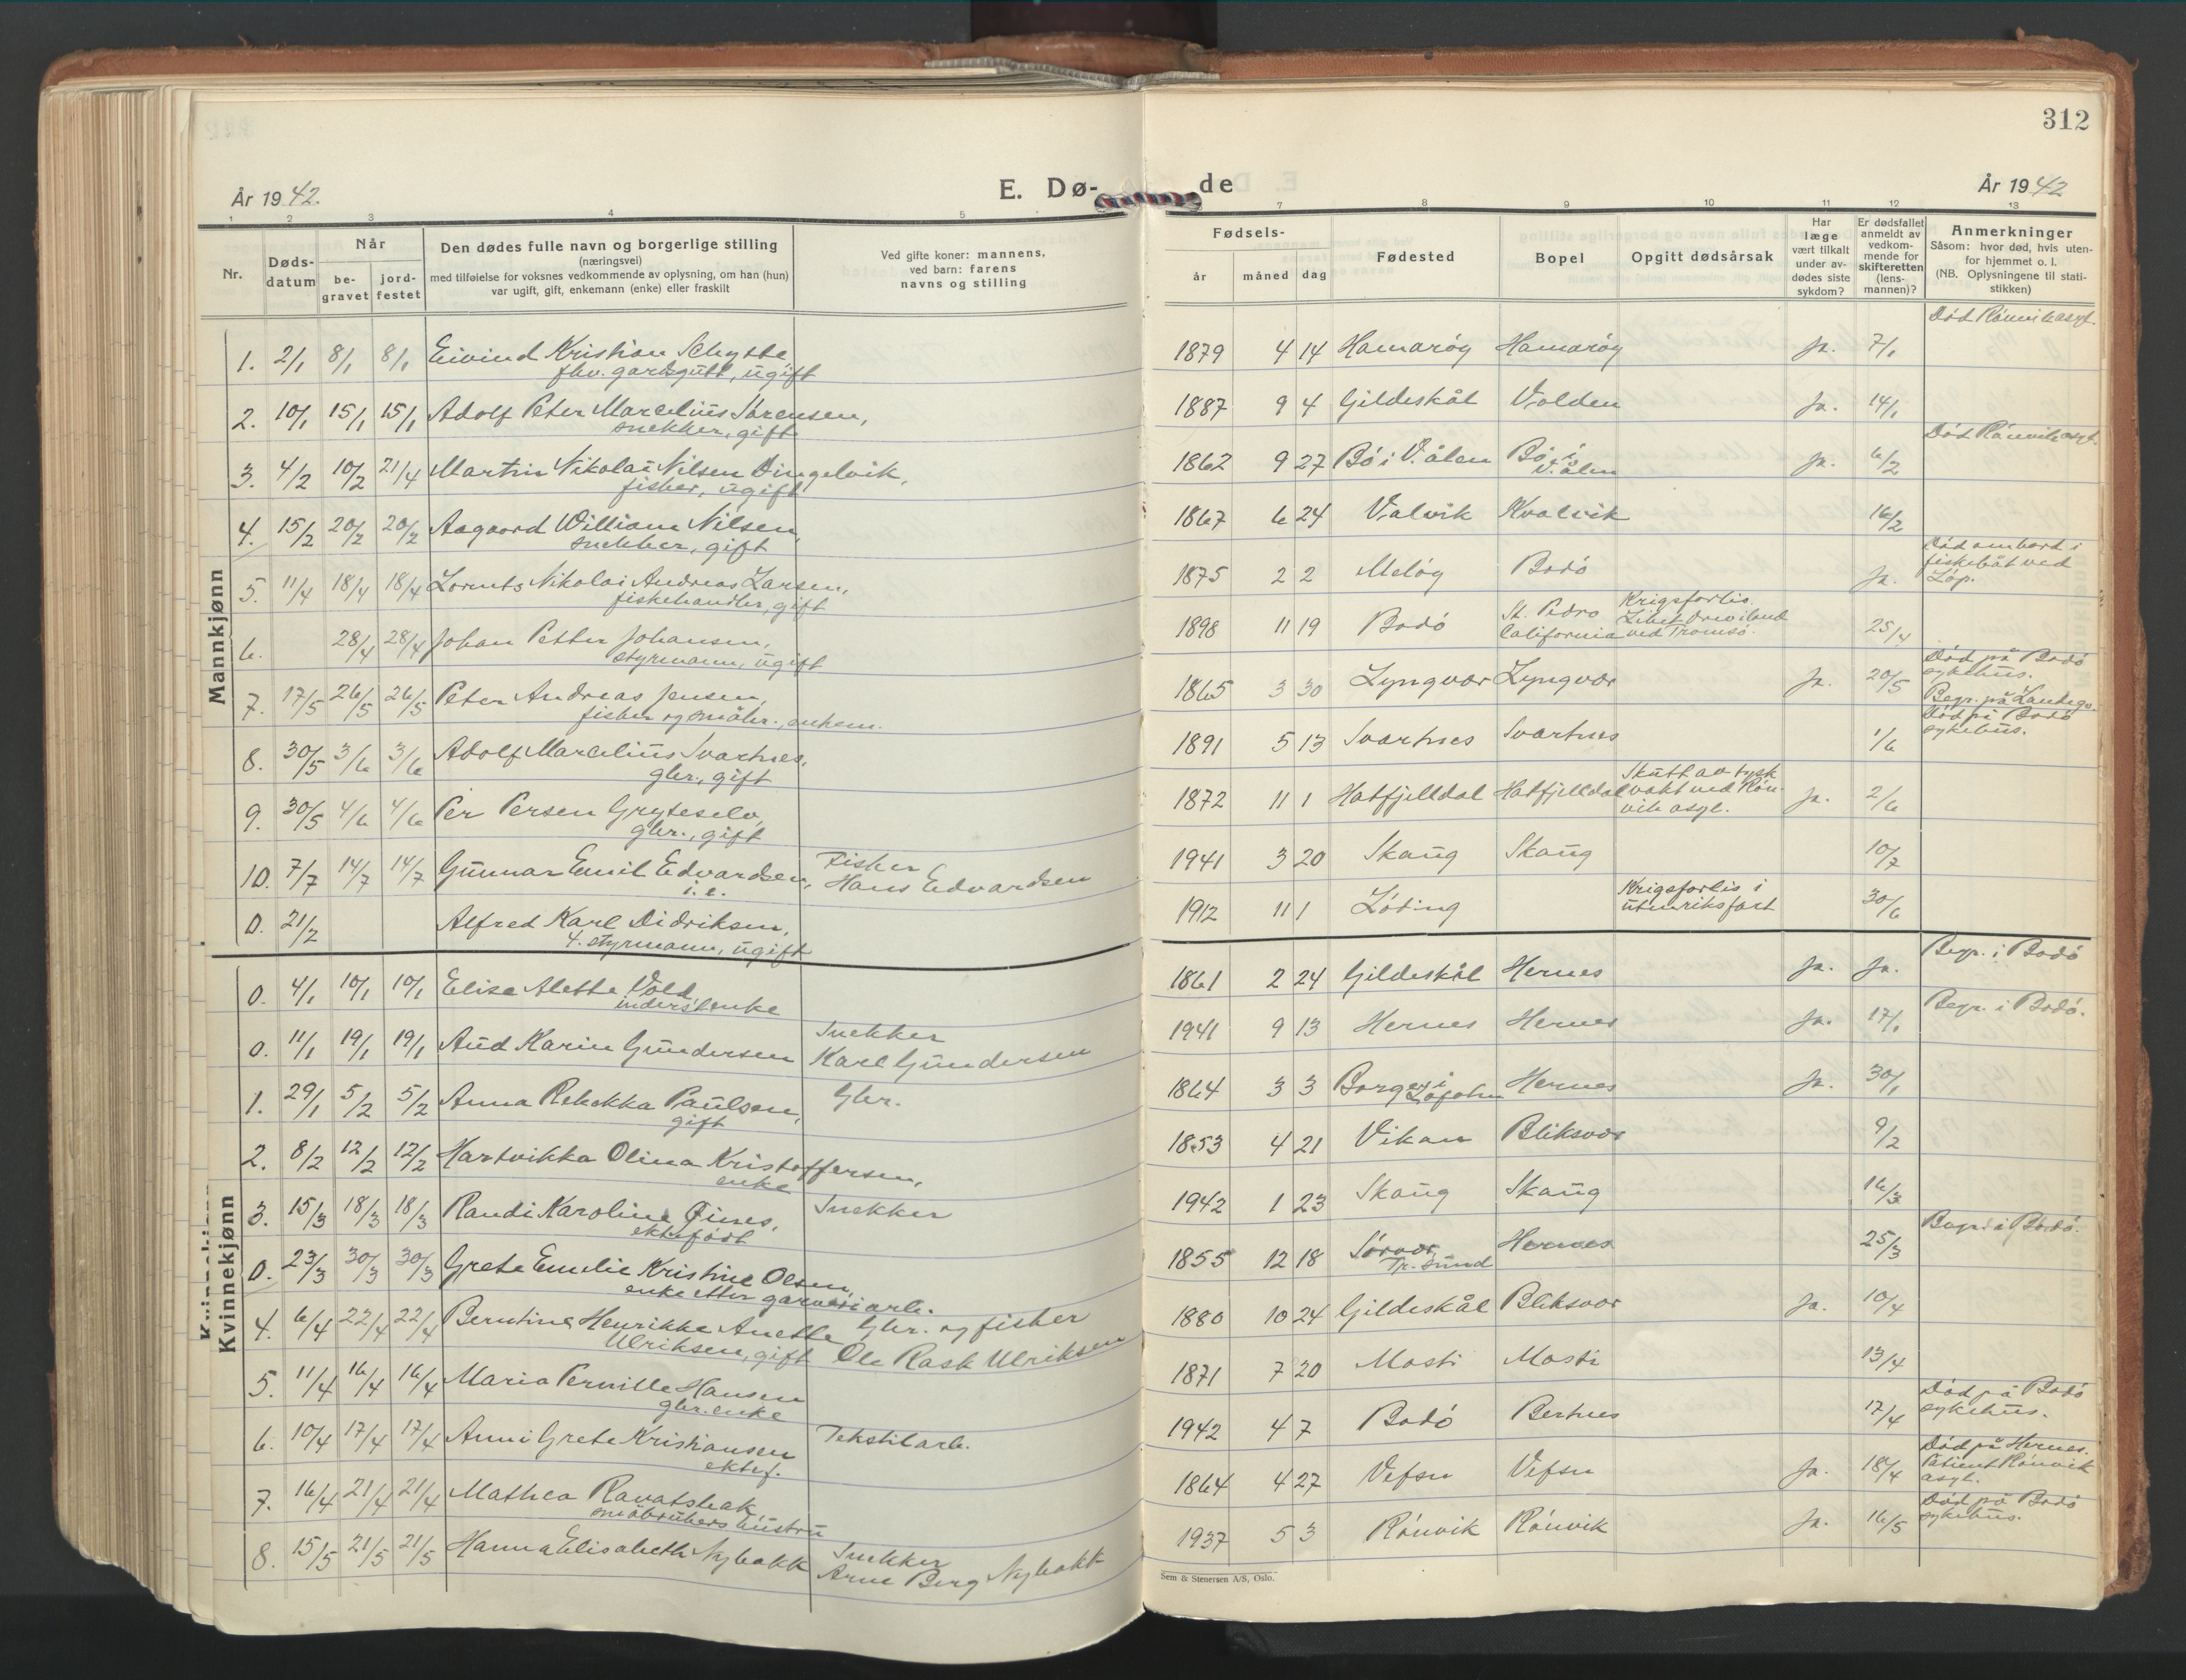 312
År 1942.
E. Dø-
de
År 1942
1 2 3 4 5
7 8 9 10 11 12 13
Nr.
Døds-
datum
Når
be-
gravet
jord-
festet
Den dødes fulle navn og borgerlige stilling
(næringsvei)
med tilføielse for voksnes vedkommende av oplysning, om han (hun)
var ugift, gift, enkemann (enke) eller fraskilt
Ved gifte koner: mannens,
ved barn: farens
navns og stilling
Fødsels-
år måned dag
Fødested
Bopel
Opgitt dødsårsak
Har
læge
vært tilkalt
under av-
dødes siste
sykdom?
Er dødsfallet
anmeldt av
vedkom-
mende for
skifteretten
(lens-
mannen)?
Anmerkninger
Såsom: hvor død, hvis uten-
for hjemmet o. l.
(NB. Oplysningene til stati-
stikken)
Mannkjønn
1. 2/1 8/1 8/1 Eivind Kristian Schytte
fhv. gardsgutt, ugift
1879 4 14 Hamarøy Hamarøy ja. 7/1 Død Rønvik asyl.
2. 10/1 15/1 15/1 Adolf Peter Marcelius Sørensen,
snekker, gift
1887 9 4 Gildeskål Valden ja. 14/1
3. 4/2 10/2 21/4 Martin Nikolai Nilsen Dingelvik,
fisker, ugift
1862 9 27 Bø i V.ålen Bø i
V.ålen ja. 6/2 Død Rønvik asyl.
4. 15/2 20/2 20/2 Aagaard William Nilsen,
snekker, gift
1867 6 24 Valvik Kvalvik 16/2
5. 11/4 18/4 18/4 Lorents Nikolai Andreas Larsen,
fiskehandler, gift
1875 2 2 Meløy Bodø ja. Død ombord i
fiskebåt ved
Løp.
6. 28/4 28/4 Johan Petter Johansen,
styrmann, ugift
1898 11 19 Bodø St. Pedro
California Krigsforlis.
Liket drev iland
ved Tromsø. 25/4
7. 17/5 26/5 26/5 Peter Andreas Jensen,
fisker og småbr., enkem.
1865 3 30 Lyngvær Lyngvær ja. 20/5 Død på Bodø
sykehus.
Begr. på Landego.
8. 30/5 3/6 3/6 Adolf Marcelius Svartnes,
gbr., gift
1891 5 13 Svartnes Svartnes 1/6 Død på Bodø
sykehus.
9. 30/5 4/6 4/6 Per Persen Gryteselv,
gbr., gift
1872 11 1 Hatfjelldal Hatfjelldal Skutt av tysk
vakt ved Røn-
vik asyl. ja. 2/6
10. 7/7 14/7 14/7 Gunnar Emil Edvardsen,
i. e.
Fisker
Hans Edvardsen
1941 3 20 Skaug Skaug 10/7
0. 21/2 Alfred Karl Didriksen,
4. styrmann, ugift
1912 11 1 Løding Krigsforlis i
utenriksfart 30/6
Kvinnekjønn
0. 4/1 10/1 10/1 Elise Alette Vold
inderstenke
1861 2 24 Gildeskål Hernes ja. ja. Begr. i Bodø
0. 11/1 19/1 19/1 Aud Karin Gundersen
Snekker
Karl Gundersen
1941 9 13 Hernes Hernes ja. 17/1 Begr. i Bodø.
1. 29/1 5/2 5/2 Anna Rebekka Paulsen,
gift
Gbr.
1864 3 3 Borge i
Lofoten Hernes ja. 30/1
2. 8/2 12/2 12/2 Hartvikka Olina Kristoffersen,
enke
1853 4 21 Vikan Bliksvær 9/2
3. 15/3 18/3 18/3 Randi Karoline Fines,
ektefødt
Snekker
1942 1 23 Skaug Skaug 16/3
0. 23/3 30/3 30/3 Grete Emelie Kristine Olsen,
enke etter garveriarb.
1855 12 18 Sørvær,
Tr. sund Hernes 25/3 Begr. i Bodø.
4. 6/4 22/4 22/4 Berntine Henrikke Anette
Ulriksen, gift
Gbr. og fisker
Ole Rask Ulriksen
1880 10 24 Gildeskål Bliksvær ja. 10/4
5. 11/4 16/4 16/4 Maria Pernille Hansen
gbr. enke
1871 7 20 Masti Masti 13/4
6. 10/4 17/4 17/4 Anni Grete Kristiansen
ektef.
Tekstilarb.
1942 4 7 Bodø Bertnes 17/4 Død på Bodø
sykehus.
7. 16/4 21/4 21/4 Mathea Ravatsbak
småbrukers hustru
1864 4 27 Vefsn Vefsn ja. 18/4 Død på Hernes.
Patient Rønvik
asyl.
8. 15/5 21/5 21/5 Hanna Elisabeth Nybakk
Snekker
Arne Berg Nybakk
1937 5 3 Rønvik Rønvik ja. 16/5 Død på Bodø
sykehus.
Sem & Stenersen A/S, Oslo.